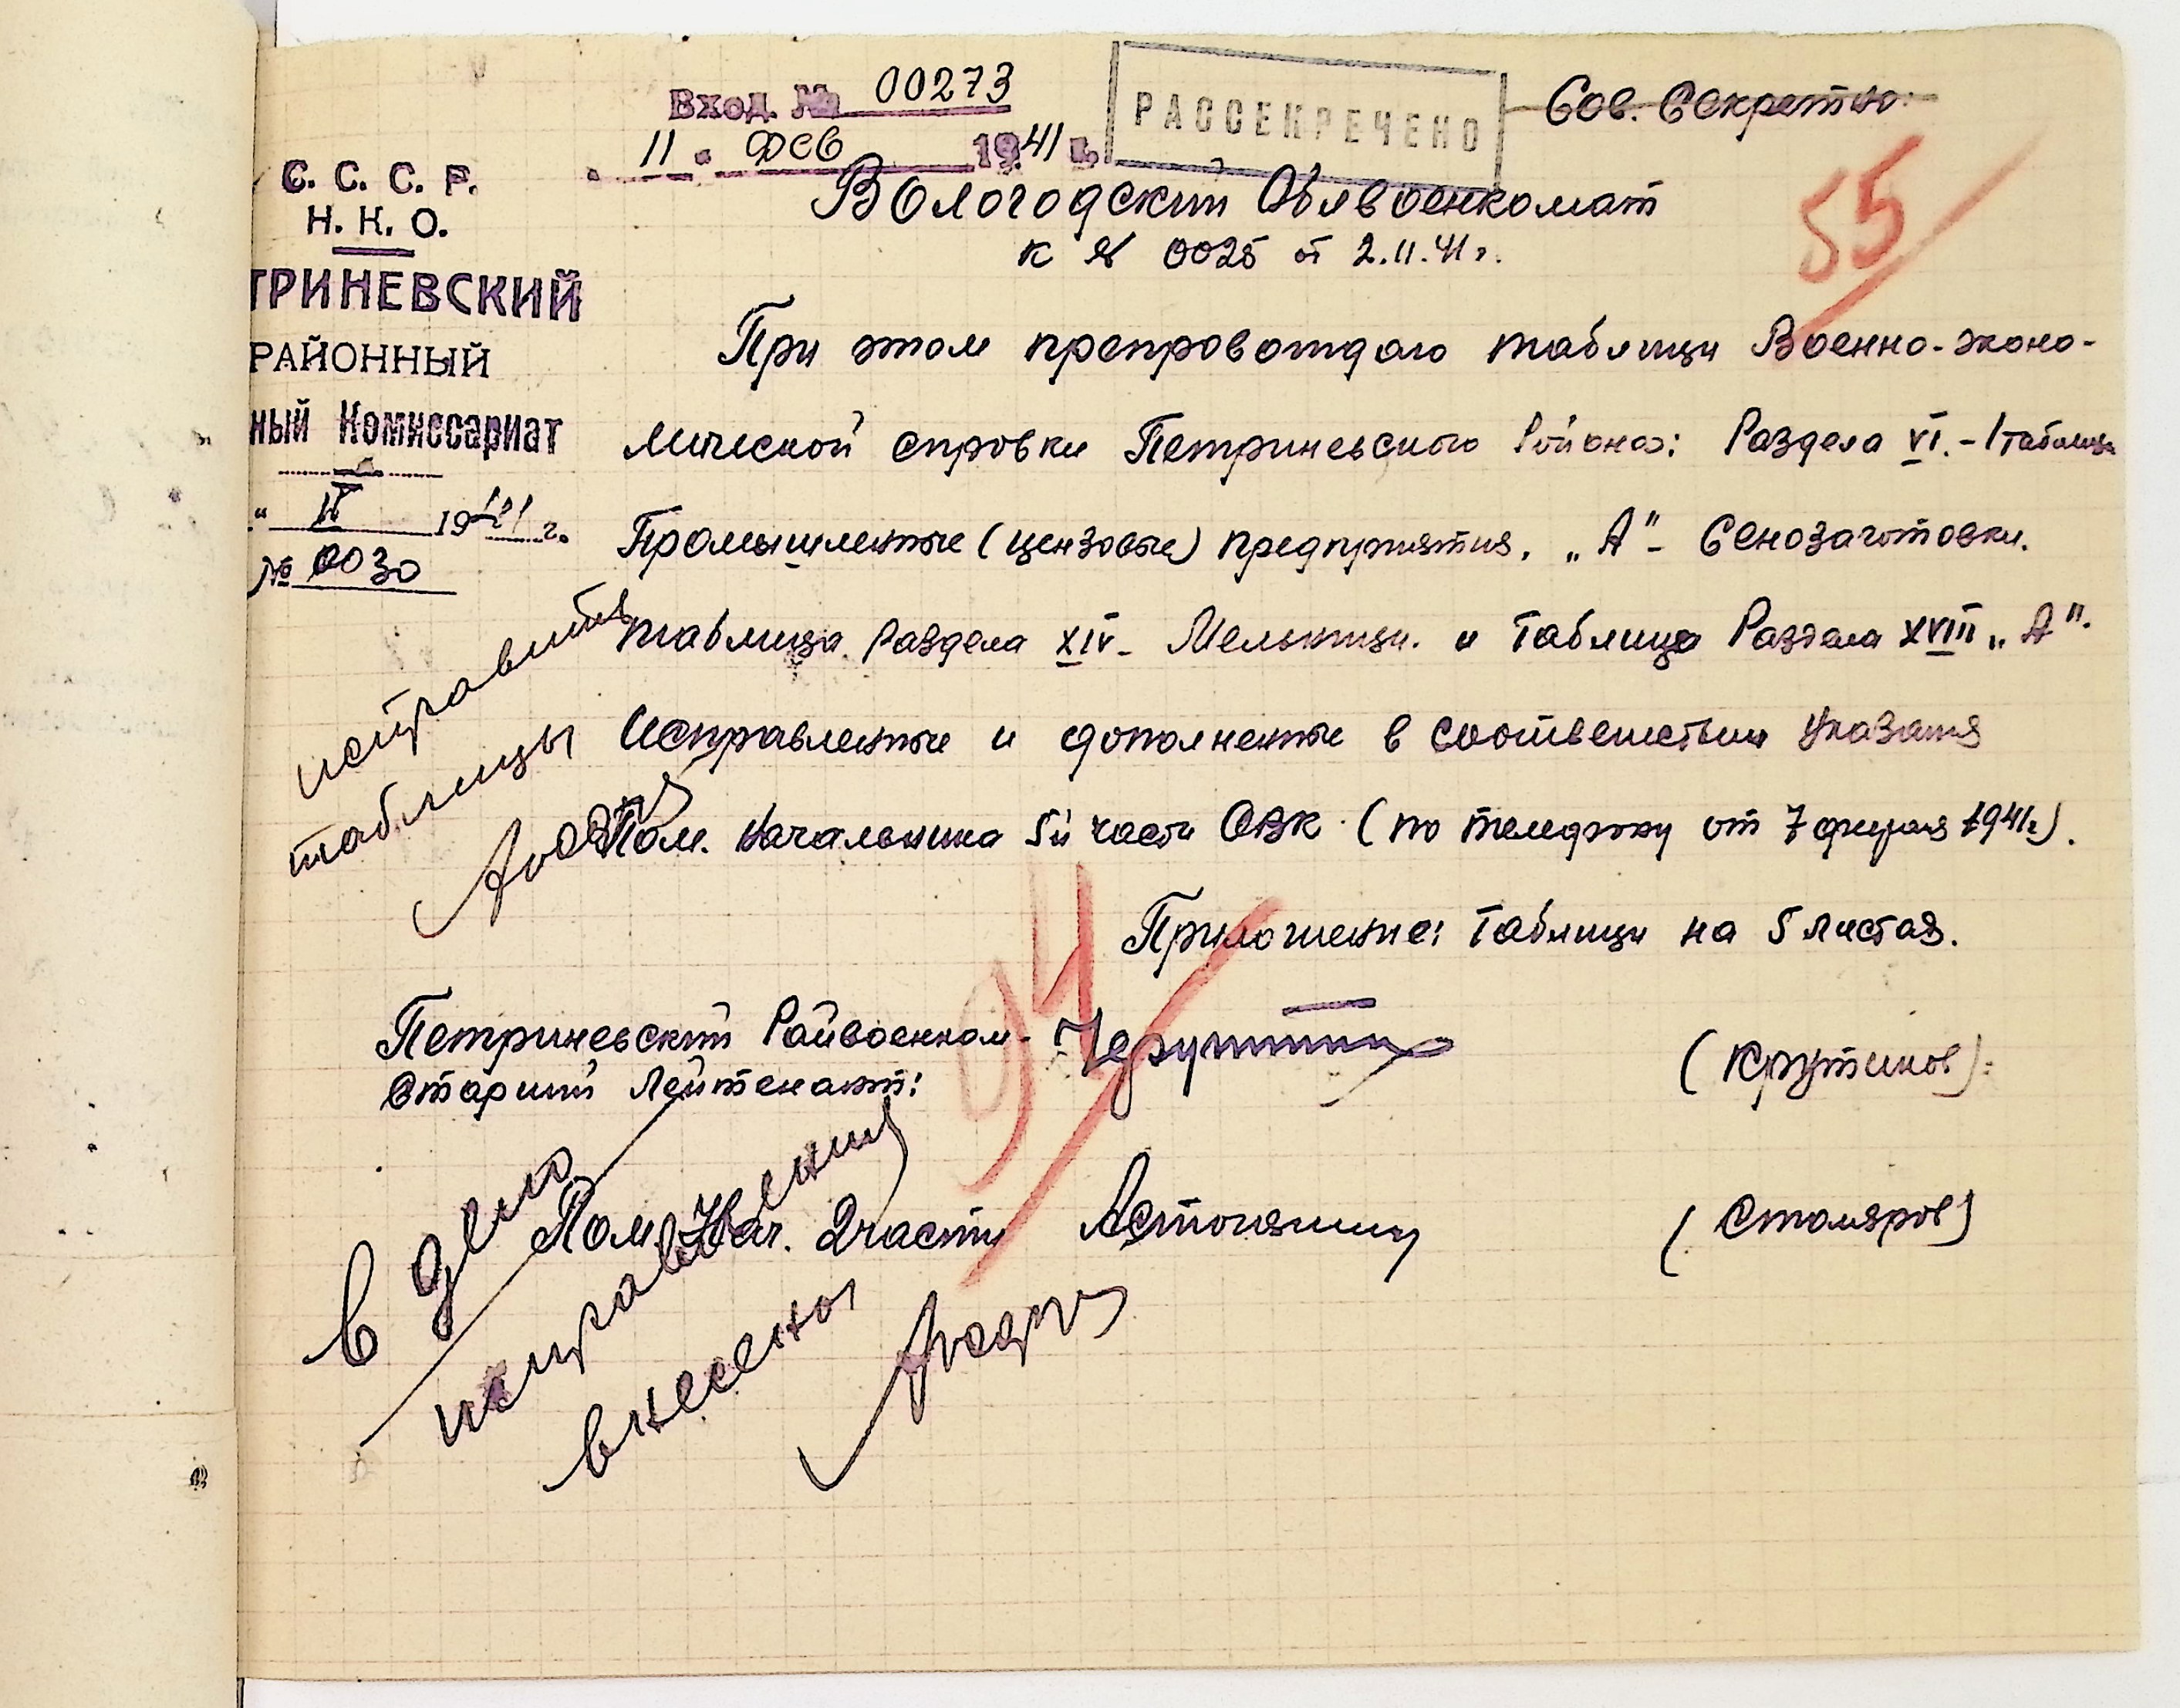 Вход. № 00273
11 • фев 1941 г.
РАССЕКРЕЧЕНО
Сов. Секретно.
С. С. С. Р.
Н. К. О.
ТРИНЕВСКИЙ
РАЙОННЫЙ
ный Комиссариат
" II 1941 г.
№ 0030
55
Вологодский Облвоенкомат
к № 0025 от 2.II.41г.
При этом препровождаю таблицы Военно-эконо-
мической справки Петриневского Района: Раздела VI. - 1 таблица
Промышленные (цензовые) предприятия, „А" - Сенозаготовки.
таблица Раздела XIV - Мельницы. и Таблица Раздела XVIII „А".
Исправленные и дополненные в соответствии Указания
Пом. Начальника 5й части ОВК (по телефону от 7 февраля 1941г).
исправить
таблицы
Приложение: Таблицы на 5 листах.
94
Петриневский Райвоенком-
Старший Лейтенант:
(Крутиков):
Пом. Нач. 2 части
(Столяров)
В дело
исправления
внесены